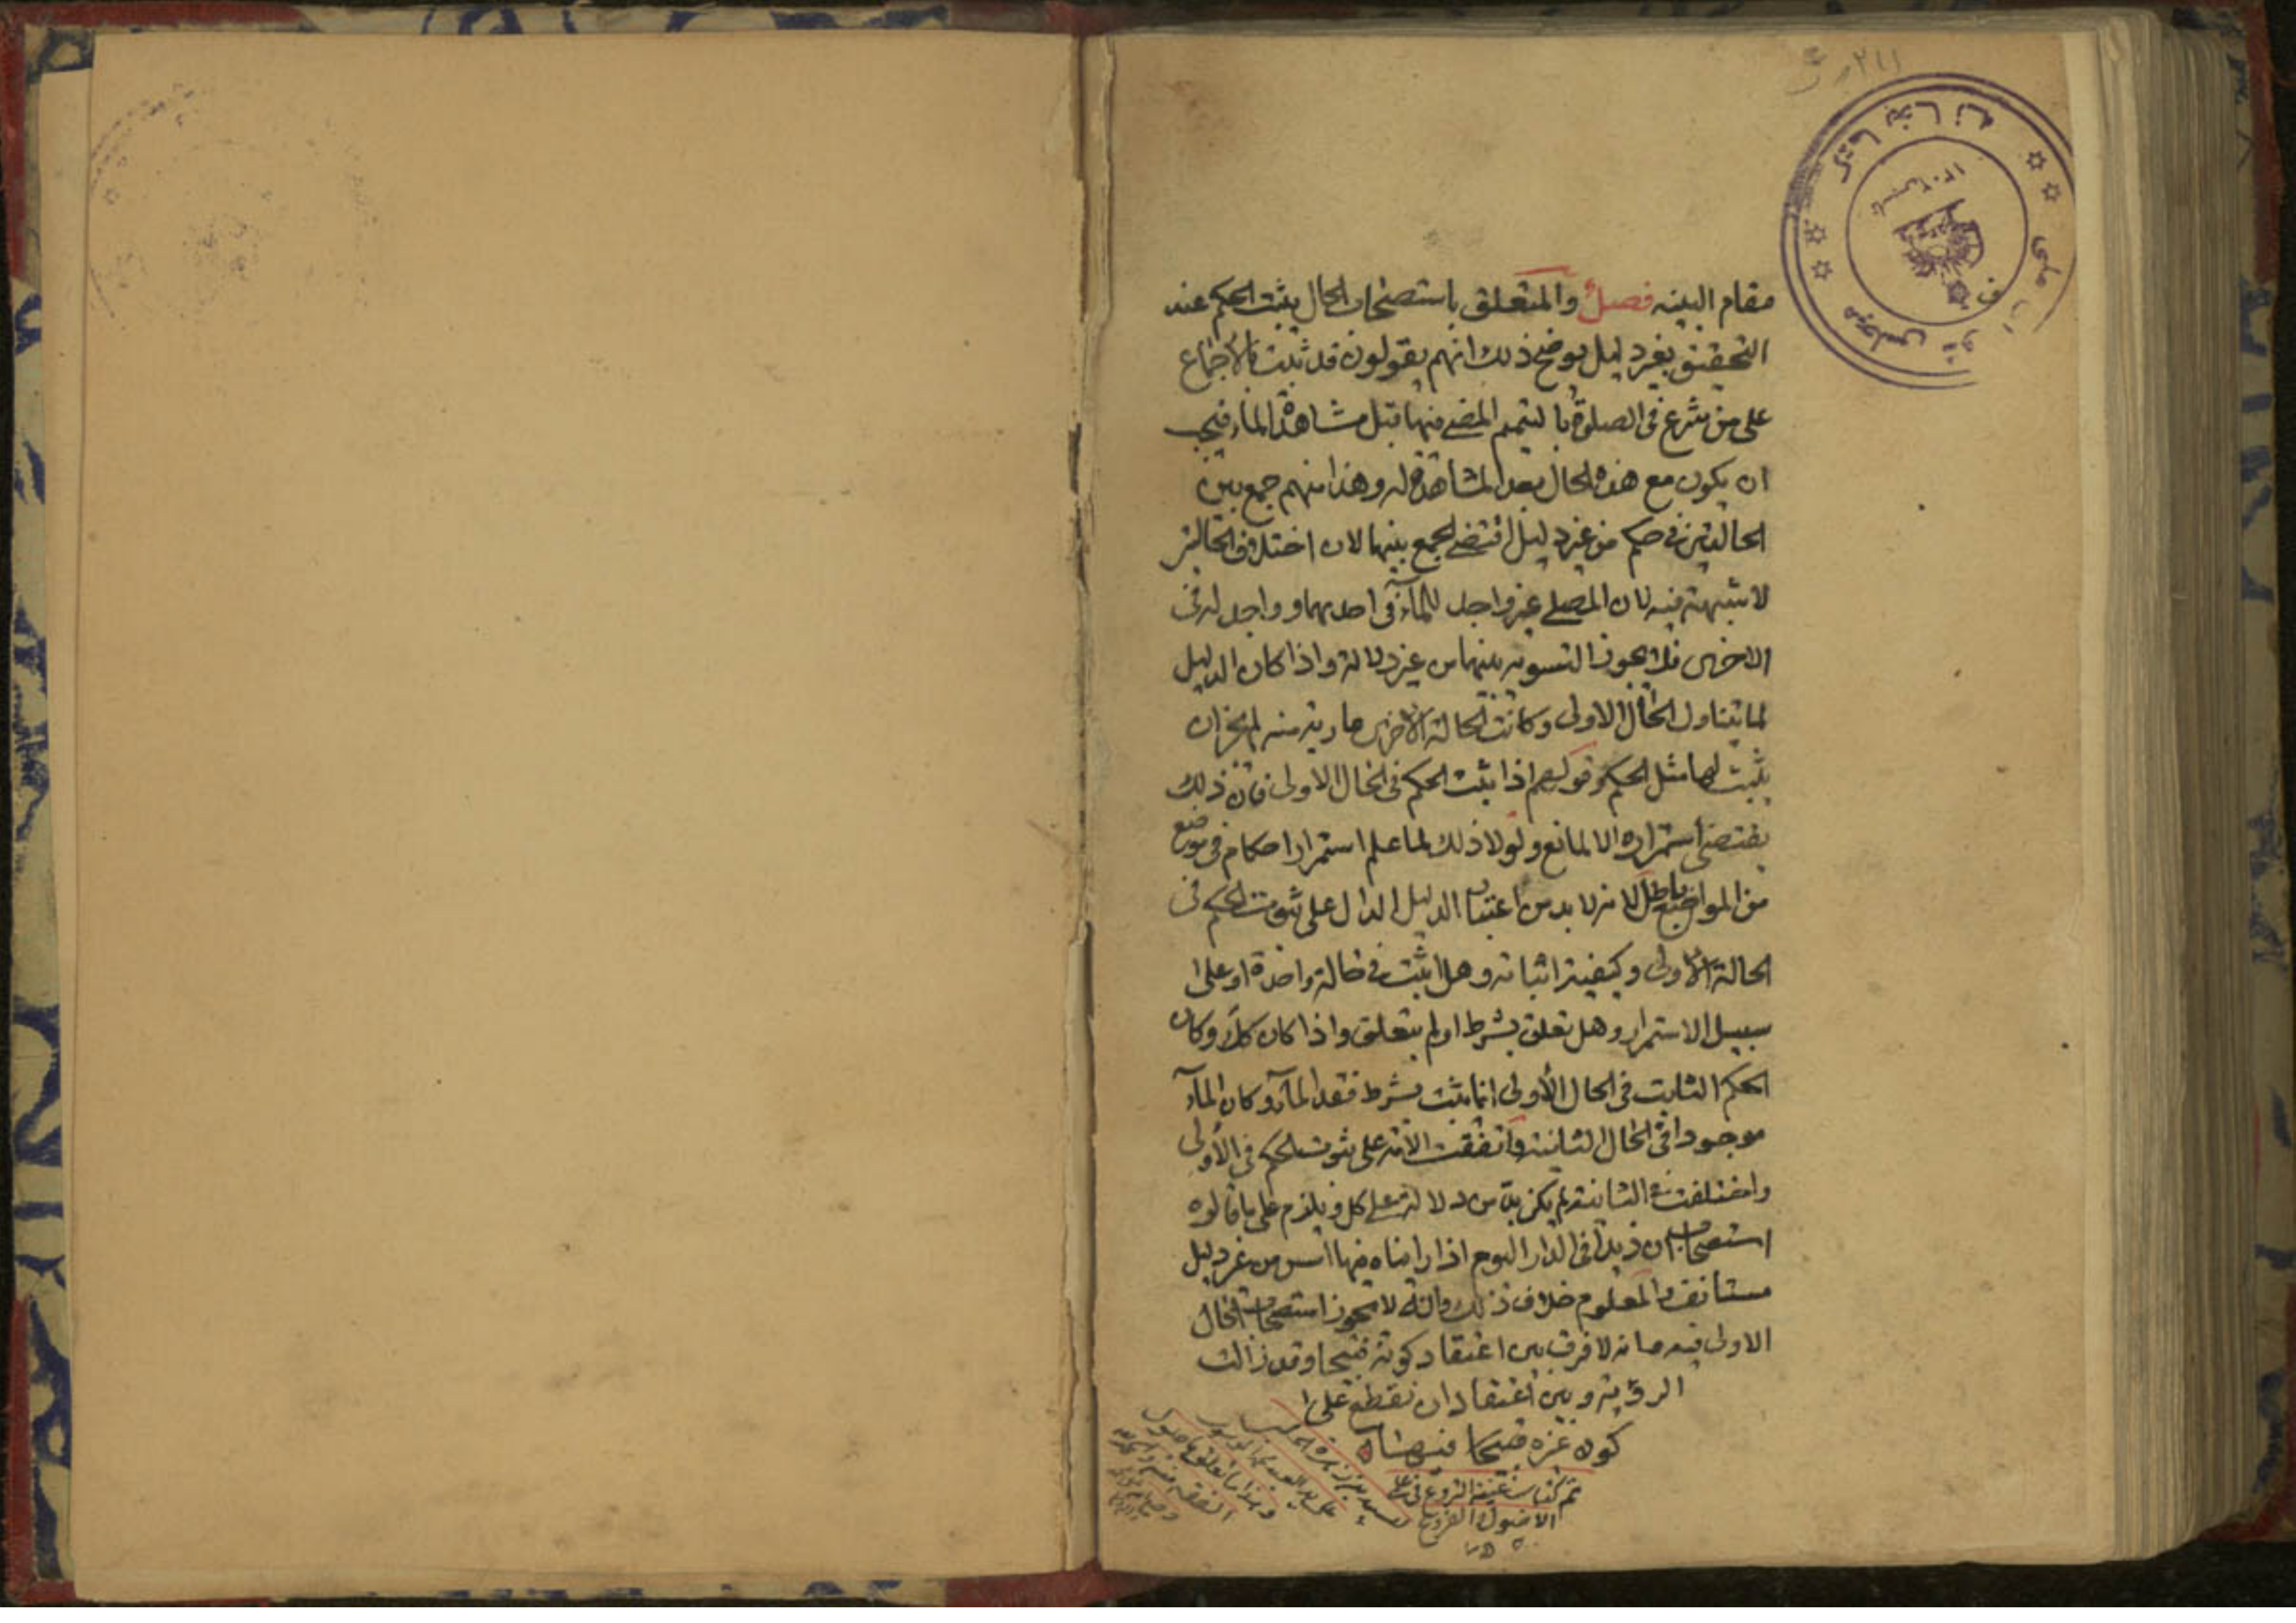 مقام البينه فصل والمتعلق باستصحاب الحال يثبت الحكم عند
التحقيق بغير دليل يوضح ذلك انهم يقولون قد ثبت بالاجماع
على من شرع فى الصلوة بالتيمم المضى فيها قبل مشاهدة الماء فيجب
ان يكون مع هذه الحال بعد المشاهدة له وهذا منهم جمع بين
الحالتين فى حكم من غير دليل اقتضى الجمع بينهما لان اختلاف الحالتين
لا شبهة فيه لان المصلى غير واجد للماء فى احديهما وواجد له فى
الاخرى فلا يجوز التسويه بينهما من غير دلالة واذا كان الدليل
لما يتناول الحال الاولى وكانت الحالة الاخرى عارية منه لم يجز ان
يثبت لها مثل الحكم وقولهم اذا ثبت الحكم فى الحال الاولى فان ذلك
يقتضى استمراره الا لمانع ولولا ذلك لما علم استمرار احكام فى موضع
من المواضع باطل لانه لا بد من اعتبار الدليل الدال على ثبوت الحكم فى
الحالة الاولى وكيفية اثباته وهل اثبت فى حالة واحدة او على
سبيل الاستمرار وهل تعلق بشرط او لم يتعلق واذا كان كك وكان
الحكم الثابت فى الحال الأولى انما ثبت بشرط فقد الماء وكان الماء
موجودا فى الحال الثانية واتفقت الامة على ثبوت الحكم فى الأولى
واختلفت فى الثانية لم يكن بد من دلالة على كل ويلزم على ما قالوه
استصحاب ان زيدا فى الدار اليوم اذا رايناه فيها امس من غير دليل
مستانف والمعلوم خلاف ذلك وانه لا يجوز استصحاب الحال
الاولى فيه فانه لا فرق بين اعتقاد كونه فيها وقد زالت
الرؤية وبين اعتقاد ان نقطع على
كون غيره فيها
تم كتاب غنية النزوع فى علمى
الاصول والفروع
كتابخانه
مجلس شوراى ملى